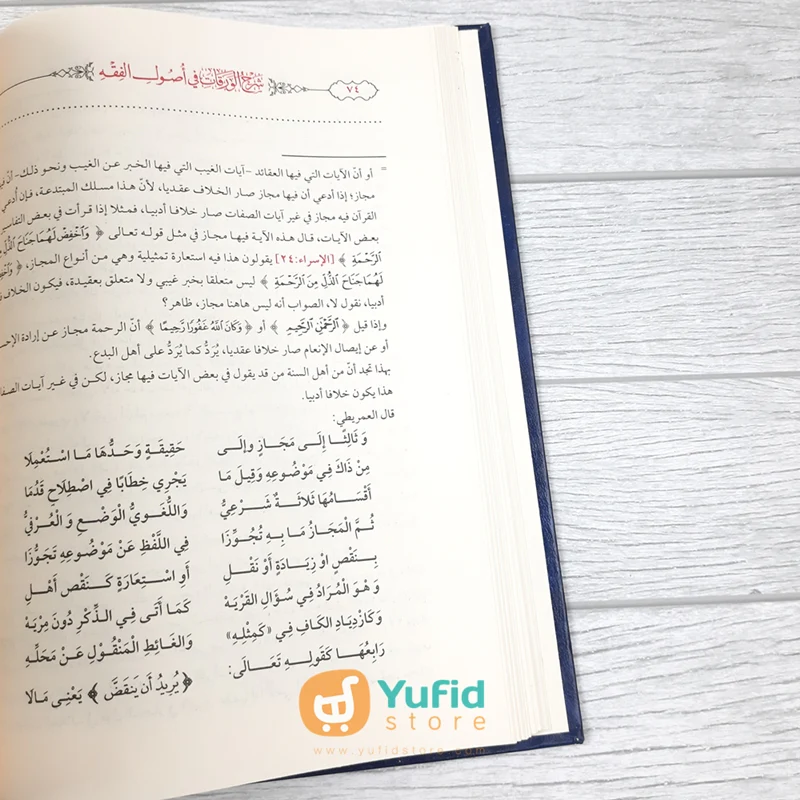 ٧٤
شرح الورقات في أصول الفقه
= أو أنّ الآيات التي فيها العقائد -آيات الغيب التي فيها الخبر عن الغيب ونحو ذلك- أنّ فيها
مجاز؛ إذا أدعي أن فيها مجاز صار الخلاف عقديا، لأنّ هذا مسلك المبتدعة، فإن أُدعي
القرآن فيه مجاز في غير آيات الصفات صار خلافا أدبيا، فمثلا إذا قرأت في بعض التفاسير
بعض الآيات، قال هذه الآية فيها مجاز في مثل قوله تعالى ﴿ وَاخْفِضْ لَهُمَا جَنَاحَ الذُّلِّ مِنَ
الرَّحْمَةِ ﴾ [الإسراء: ٢٤] يقولون هذا فيه استعارة تمثيلية وهي من أنواع المجاز،
لَهُمَا جَنَاحَ الذُّلِّ مِنَ الرَّحْمَةِ ﴾ ليس متعلقا بخبر غيبي ولا متعلق بعقيدة، فيكون الخلاف
أدبيا، نقول لا، الصواب أنه ليس هاهنا مجاز، ظاهر؟
وإذا قيل ﴿ الرَّحْمَٰنِ الرَّحِيمِ ﴾ أو ﴿ وَكَانَ اللَّهُ غَفُورًا رَّحِيمًا ﴾ أنّ الرحمة مجاز عن إرادة
أو عن إيصال الإنعام صار خلافا عقديا، يُرَدُّ كما يُرَدُّ على أهل البدع.
بهذا تجد أنّ من أهل السنة من قد يقول في بعض الآيات فيها مجاز، لكن في غير آيات
هذا يكون خلافا أدبيا.
قال العمريطي:
وَ ثَالِثًا إِلَى مَجَازٍ وإلى حَقِيقَةٍ وَحَدُّهَا مَا اسْتُعْمِلَا
مِنْ ذَاكَ فِي مَوْضُوعِهِ وَقِيلَ مَا يَجْرِي خِطَابًا فِي اصْطِلَاحٍ قَدُمَا
أَقْسَامُهَا ثَلَاثَةٌ شَرْعِيُّ وَاللُّغَوِيُّ الْوَضْعِ وَ الْعُرْفِيُّ
ثُمَّ الْمَجَازُ مَا بِهِ تُجُوِّزَا فِي اللَّفْظِ عَنْ مَوْضُوعِهِ تَجَوُّزَا
بِنَقْصٍ اوْ زِيَادَةٍ أَوْ نَقْلِ أَوِ اسْتِعَارَةٍ كَنَقْصِ أَهْلِ
وَ هْوَ الْمُرَادُ فِي سُؤَالِ القَرْيَهْ كَمَا أَتَى فِي الذِّكْرِ دُونَ مِرْيَهْ
وَكَازْدِيَادِ الكَافِ فِي «كَمِثْلِهِ» وَالغَائِطِ الْمَنْقُولِ عَنْ مَحَلِّهِ
رَابِعُهَا كَقَولِهِ تَعَالَى: ﴿ يُرِيدُ أَن يَنقَضَّ ﴾ يَعْنِى مَالَا
Yufid
store
www.yufidstore.com